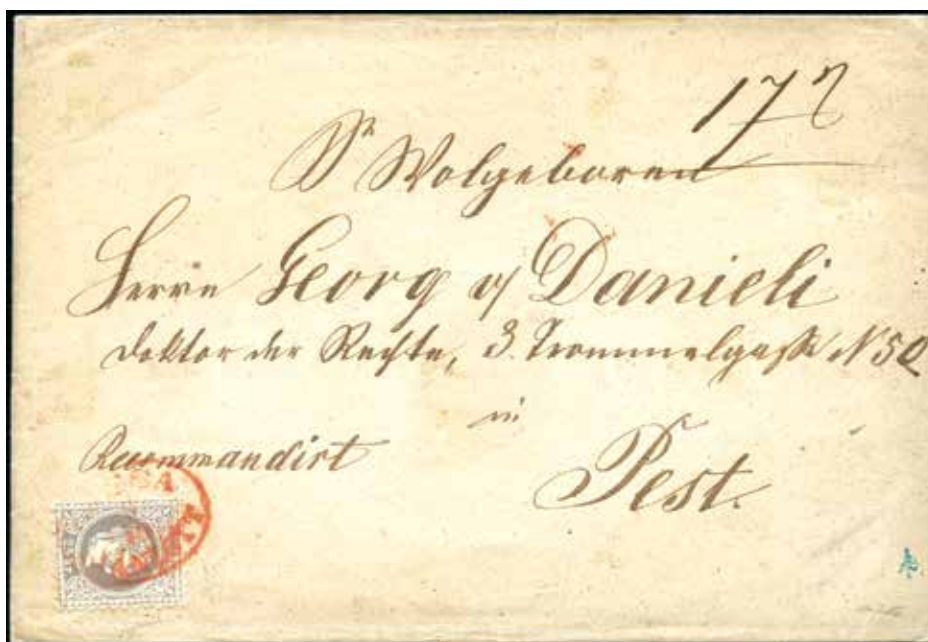 17
Sr Wolgeboren
Herrn Georg v Danieli
doktor der Rechte, 3. Trommelgasse N 50
in
Recommandirt
Pest.